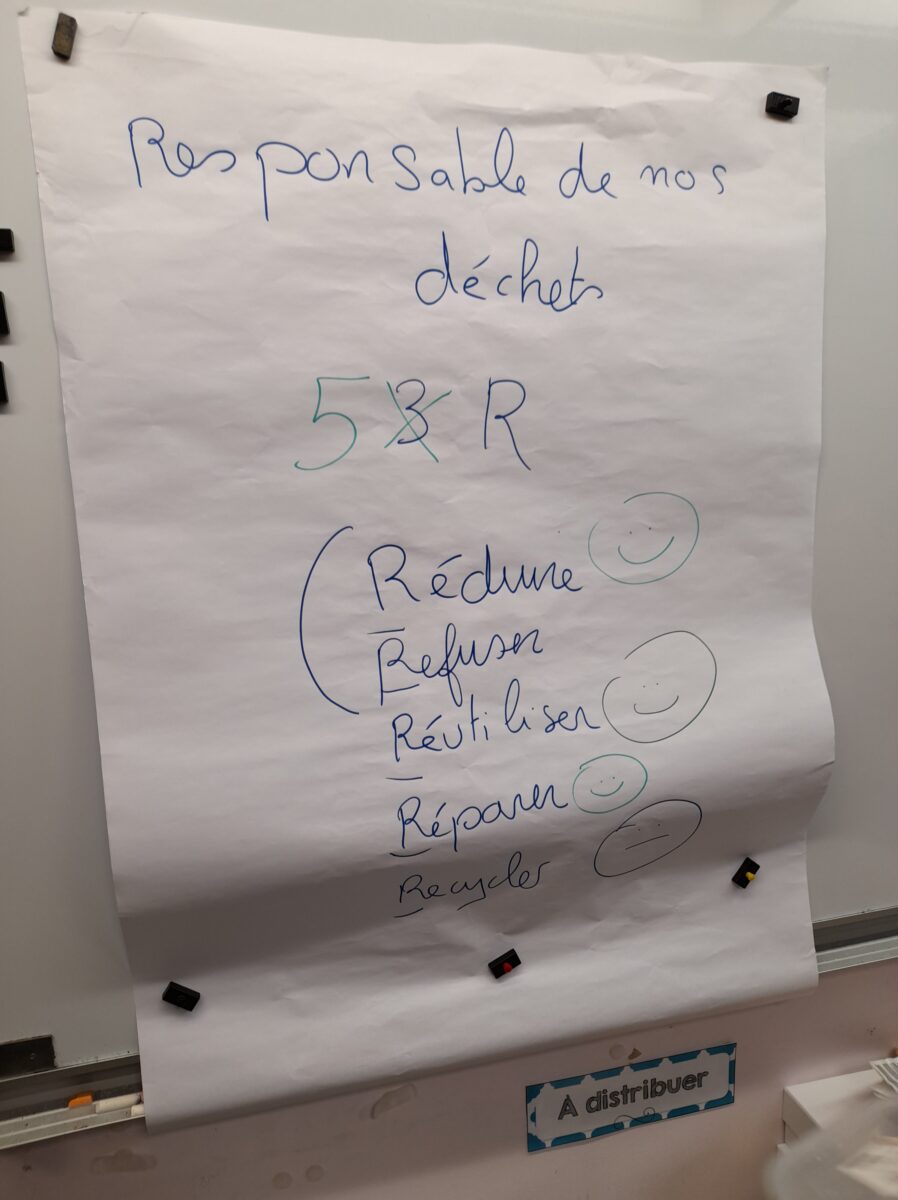 Responsable de nos
déchets
5 3 R
Réduire
Refuser
Réutiliser
Réparer
Recycler
À distribuer